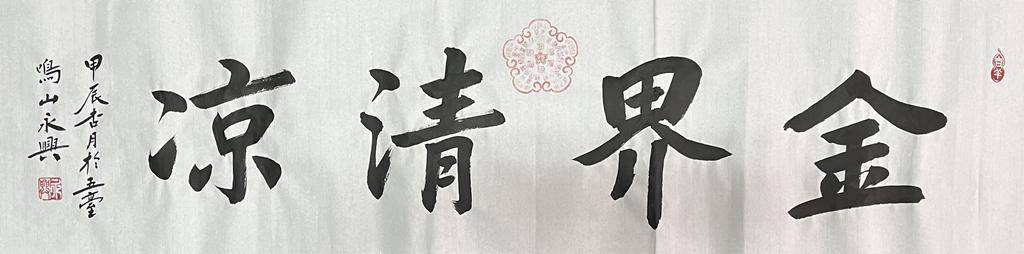 金界清凉
甲辰杏月於五臺
鳴山永興